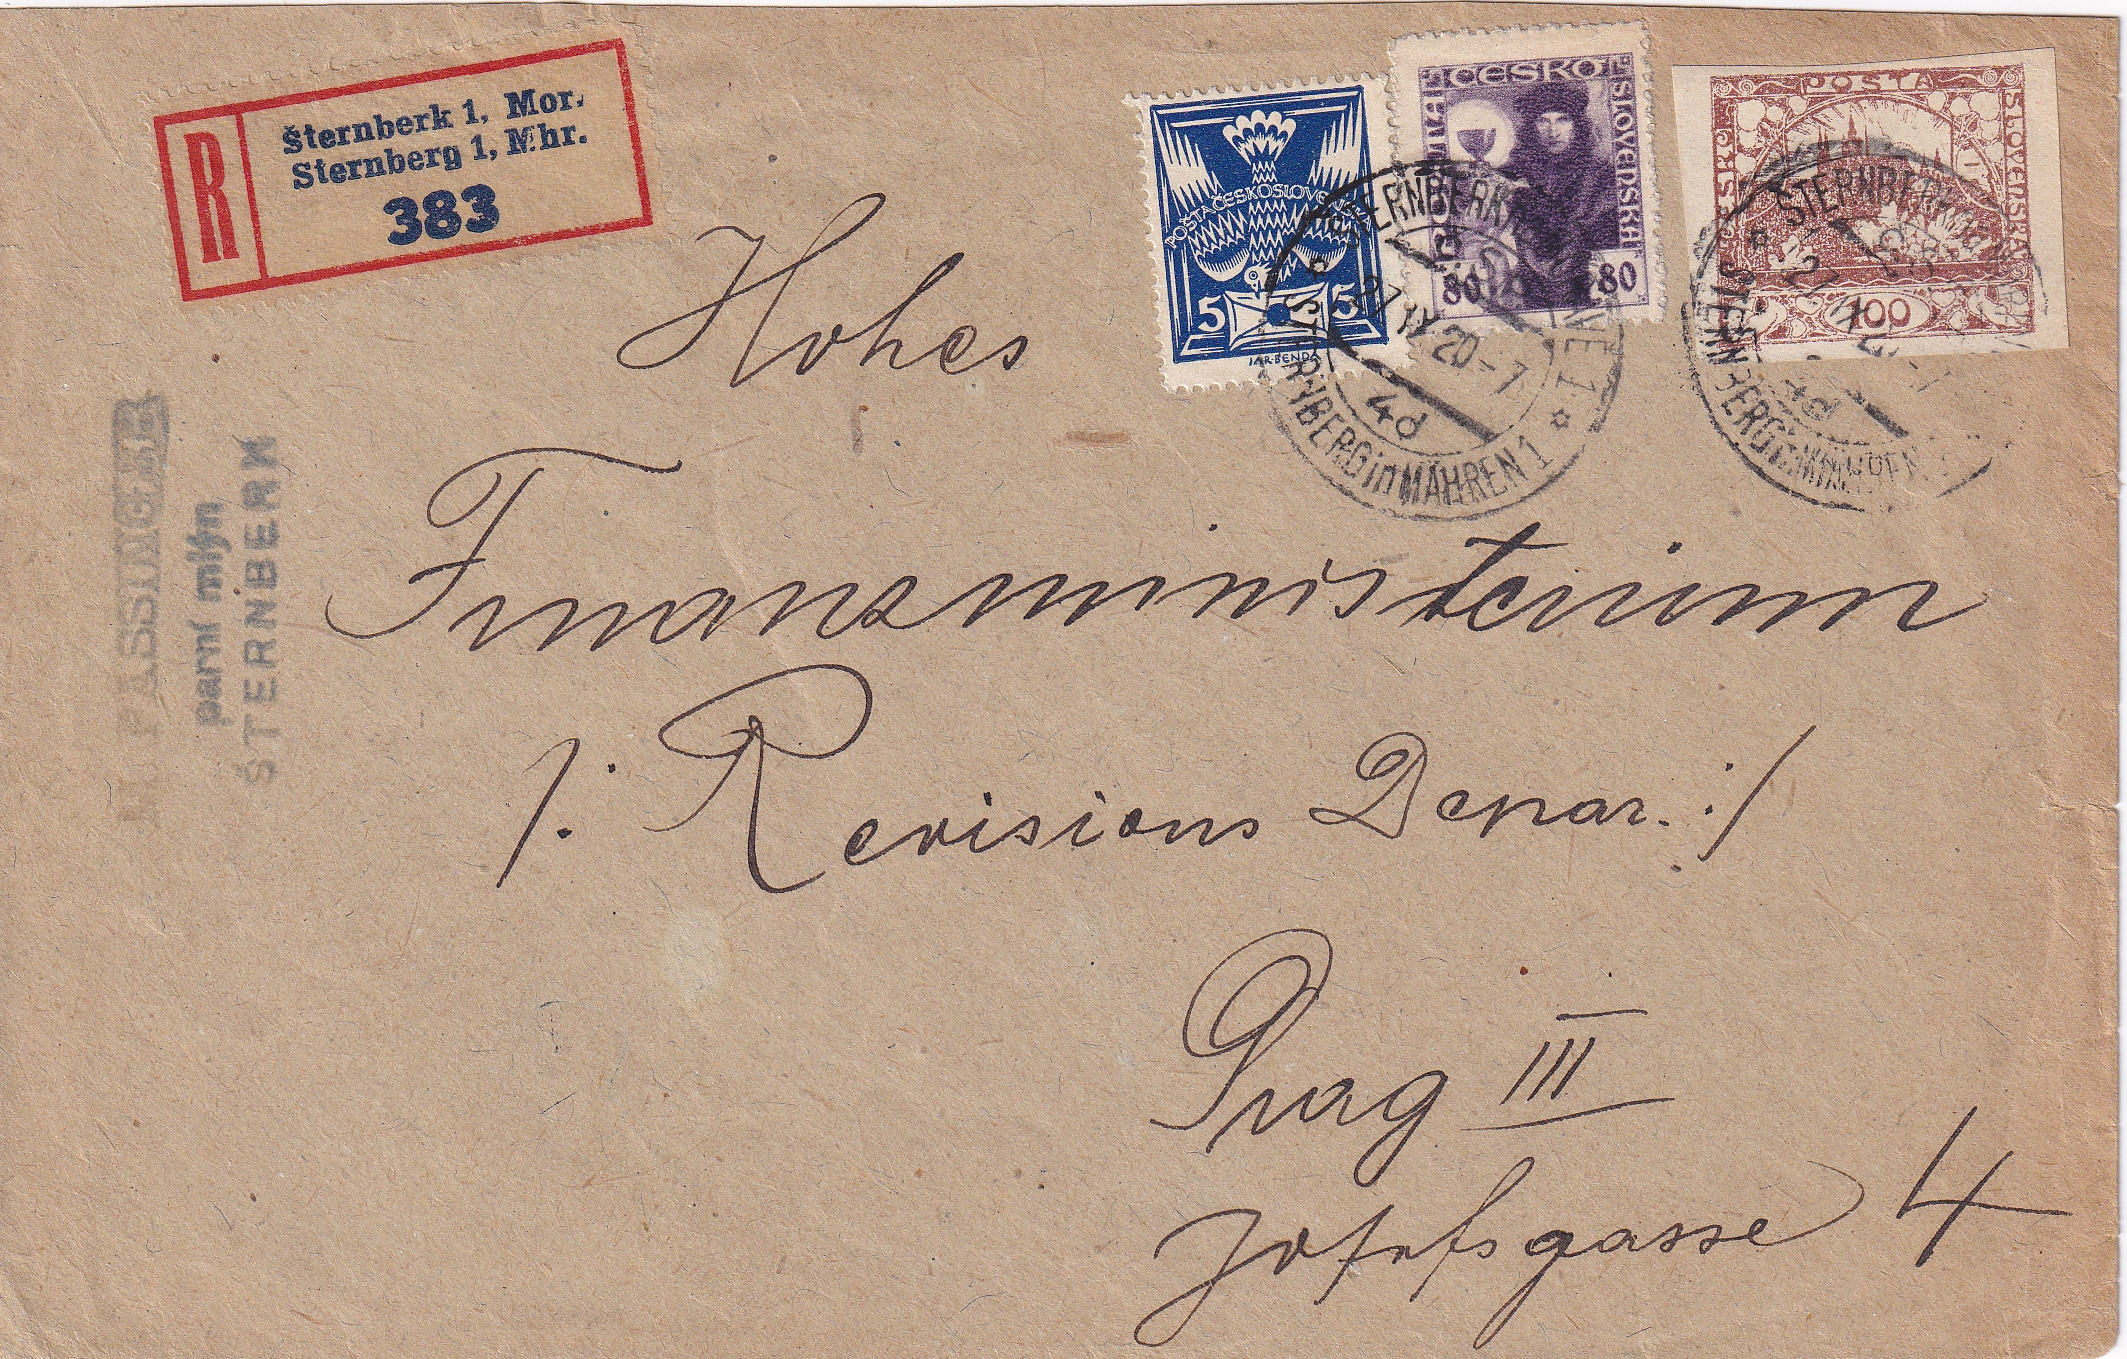 R
Šternberk 1, Mor.
Sternberg 1, Mhr.
383
POŠTA ČESKOSLOVENSKÁ
5 5
JAR. BENDA
ČESKO
SLOVENSKÁ
80 80
POŠTA
ČESKO
SLOVENSKÁ
100
STERNBERG in MÄHREN 1
27 IX 20-7
4d
ŠTERNBERK
4d
PASSINGER
parní mlýn
ŠTERNBERK
Hohes
Finanzministerium
/: Revisions Depar. :/
Prag III
Josefsgasse 4